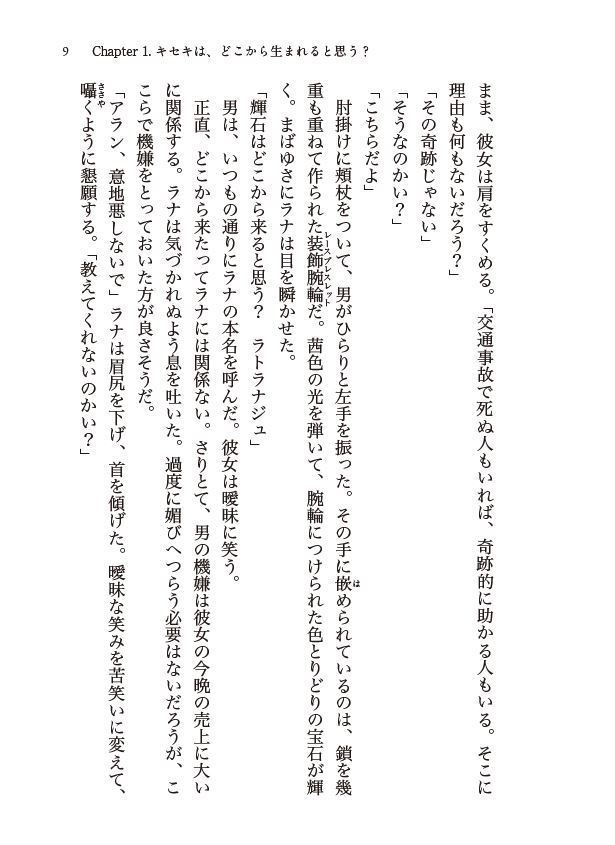 9 Chapter 1. キセキは、どこから生まれると思う？
まま、彼女は肩をすくめる。「交通事故で死ぬ人もいれば、奇跡的に助かる人もいる。そこに
理由も何もないだろう？」
「その奇跡じゃない」
「そうなのかい？」
「こちらだよ」
肘掛けに頬杖をついて、男がひらりと左手を振った。その手に嵌められているのは、鎖を幾
重も重ねて作られた装飾腕輪だ。茜色の光を弾いて、腕輪につけられた色とりどりの宝石が輝
く。まばゆさにラナは目を瞬かせた。
「輝石はどこから来ると思う？　ラトラナジュ」
男は、いつもの通りにラナの本名を呼んだ。彼女は曖昧に笑う。
正直、どこから来たってラナには関係ない。さりとて、男の機嫌は彼女の今晩の売上に大い
に関係する。ラナは気づかれぬよう息を吐いた。過度に媚びへつらう必要はないだろうが、こ
こらで機嫌をとっておいた方が良さそうだ。
「アラン、意地悪しないで」ラナは眉尻を下げ、首を傾げた。曖昧な笑みを苦笑いに変えて、
囁くように懇願する。「教えてくれないのかい？」
は
レースブレスレット
ささや